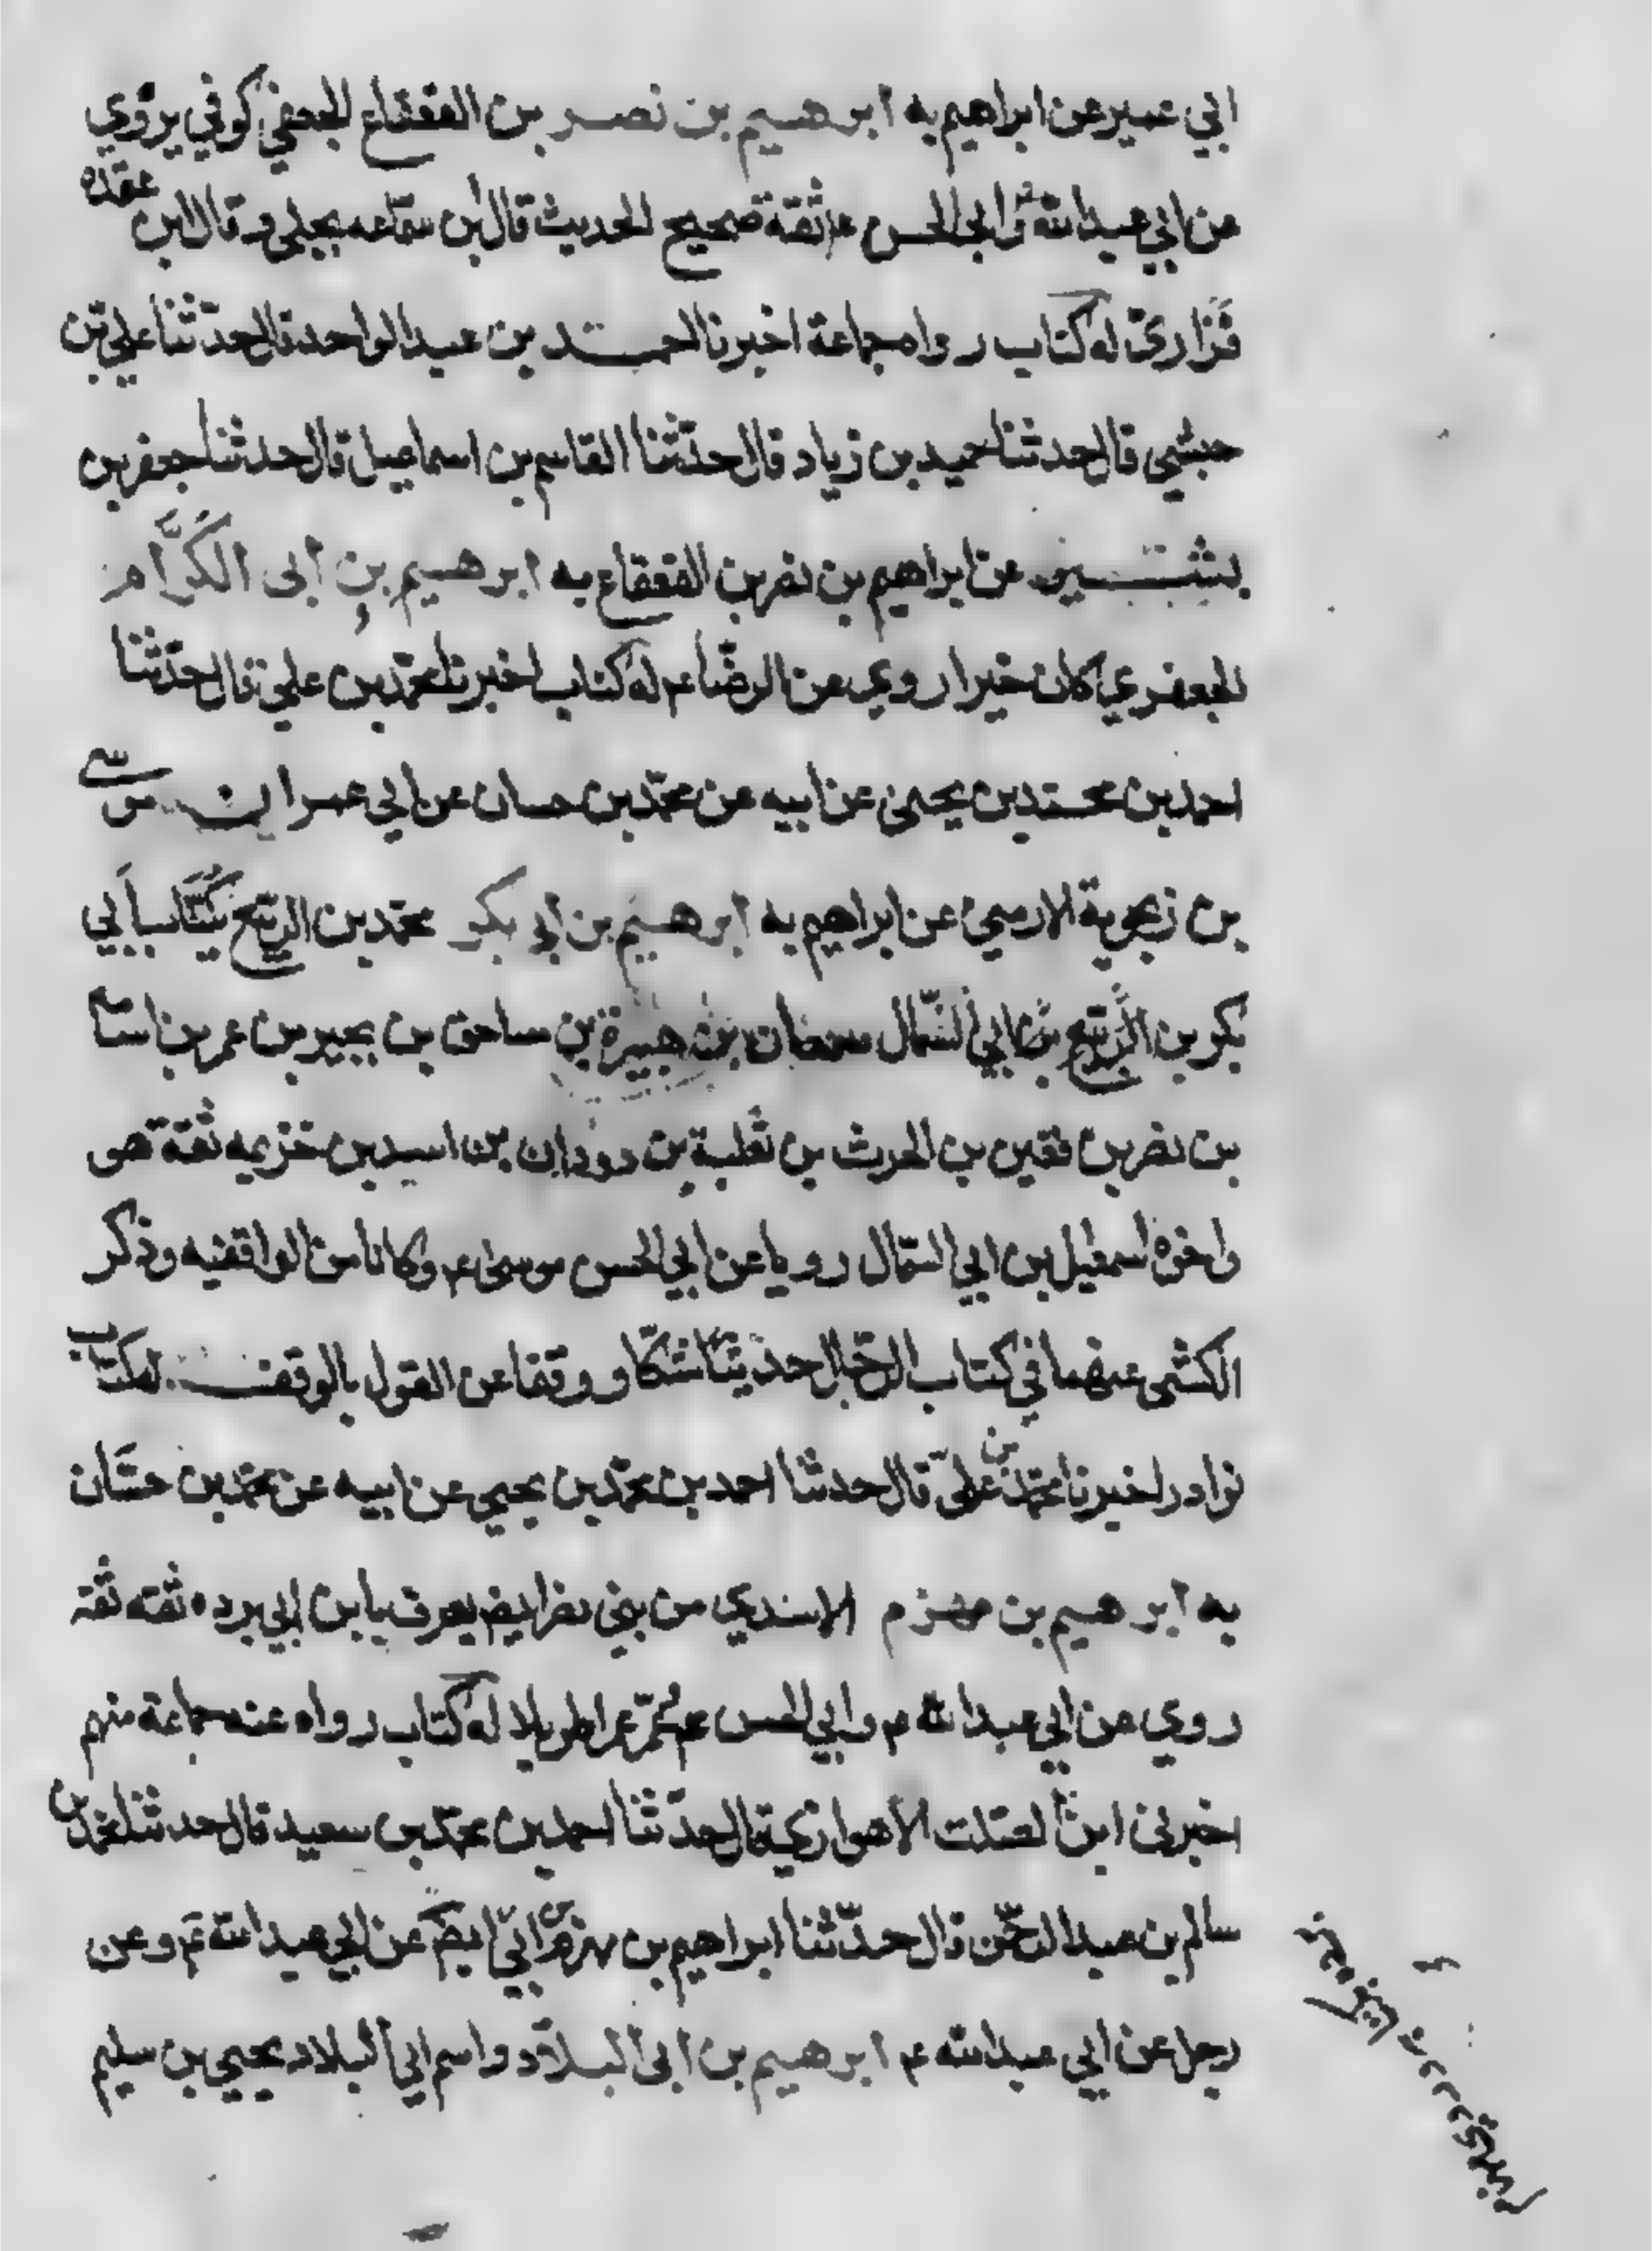 ابي عمير عن ابراهيم به ابرهيم بن نصر بن القعقاع الجعفي كوفي يروي
عن ابي عبد الله وابي الحسن ع ثقة صحيح الحديث قال ابن سماعه بجلي وقال ابن عقده
فزاري له كتاب رواه جماعة اخبرنا احمد بن عبد الواحد قال حدثنا علي بن
حبشي قال حدثنا حميد بن زياد قال حدثنا القاسم بن اسماعيل قال حدثنا جعفر بن
بشير عن ابراهيم بن نصر بن القعقاع به ابرهيم بن أبى الكرَّام
الجعفري كان خيرا روي عن الرضا عم له كتاب اخبرنا محمد بن علي قال حدثنا
احمد بن محمد بن يحيى عن ابيه عن محمد بن حسان عن ابي عمران موسى
بن زنجوية الارمني عن ابراهيم به ابرهيم بن أبي بكر محمد بن الربيع يكنى بأبي
بكر بن الربيع بن ابي السمال سمعان بن هبيرة بن مساحق بن بجير بن عمير بن اسامة
بن نصر بن قعين بن الحرث بن ثعلبة بن دودان بن اسد بن خزيمه ثقة هو
واخوه اسمعيل بن ابي السمال رويا عن ابي الحسن موسى عم وكانا من الواقفيه وذكر
الكشي عنهما في كتاب الرجال حديثا شكا ووقفا عن القول بالوقف له كتاب
نوادر اخبرنا محمد بن علي قال حدثنا احمد بن محمد بن يحيى عن ابيه عن محمد بن حسان
به ابرهيم بن مهزم الاسدي من بني نصر ايضا يعرف بابن ابي برده ثقه ثقة
روي عن ابي عبد الله عم وابي الحسن عم عمّر عمرا طويلا له كتاب رواه عنه جماعة منهم
اخبرنى ابن الصلت الأهوازي قال حدثنا احمد بن محمد بن سعيد قال حدثنا محمد بن
سالم بن عبد الرحمن قال حدثنا ابراهيم بن مهزم بن ابي عن ابي عبد الله عم وعن
رجل عن ابي عبد الله عم ابرهيم بن ابى البلاد واسم ابي البلاد يحيي بن سليم